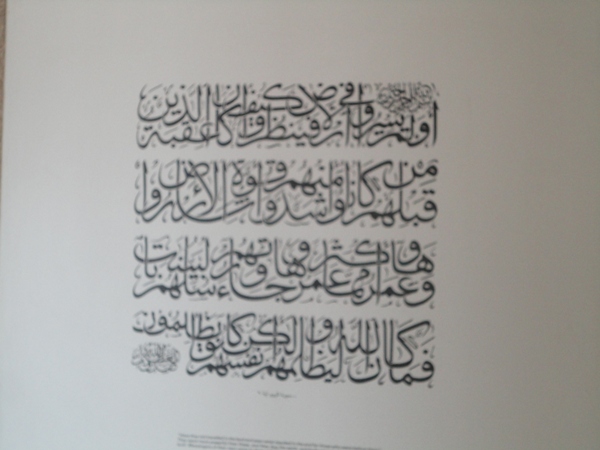 أولم يسيروا في الأرض فينظروا كيف كان عقبة الذين
من قبلهم كانوا أشد منهم قوة وأثاروا الأرض
وعمروها أكثر مما عمروها وجاءتهم رسلهم بالبينت
فما كان الله ليظلمهم ولكن كانوا أنفسهم يظلمون